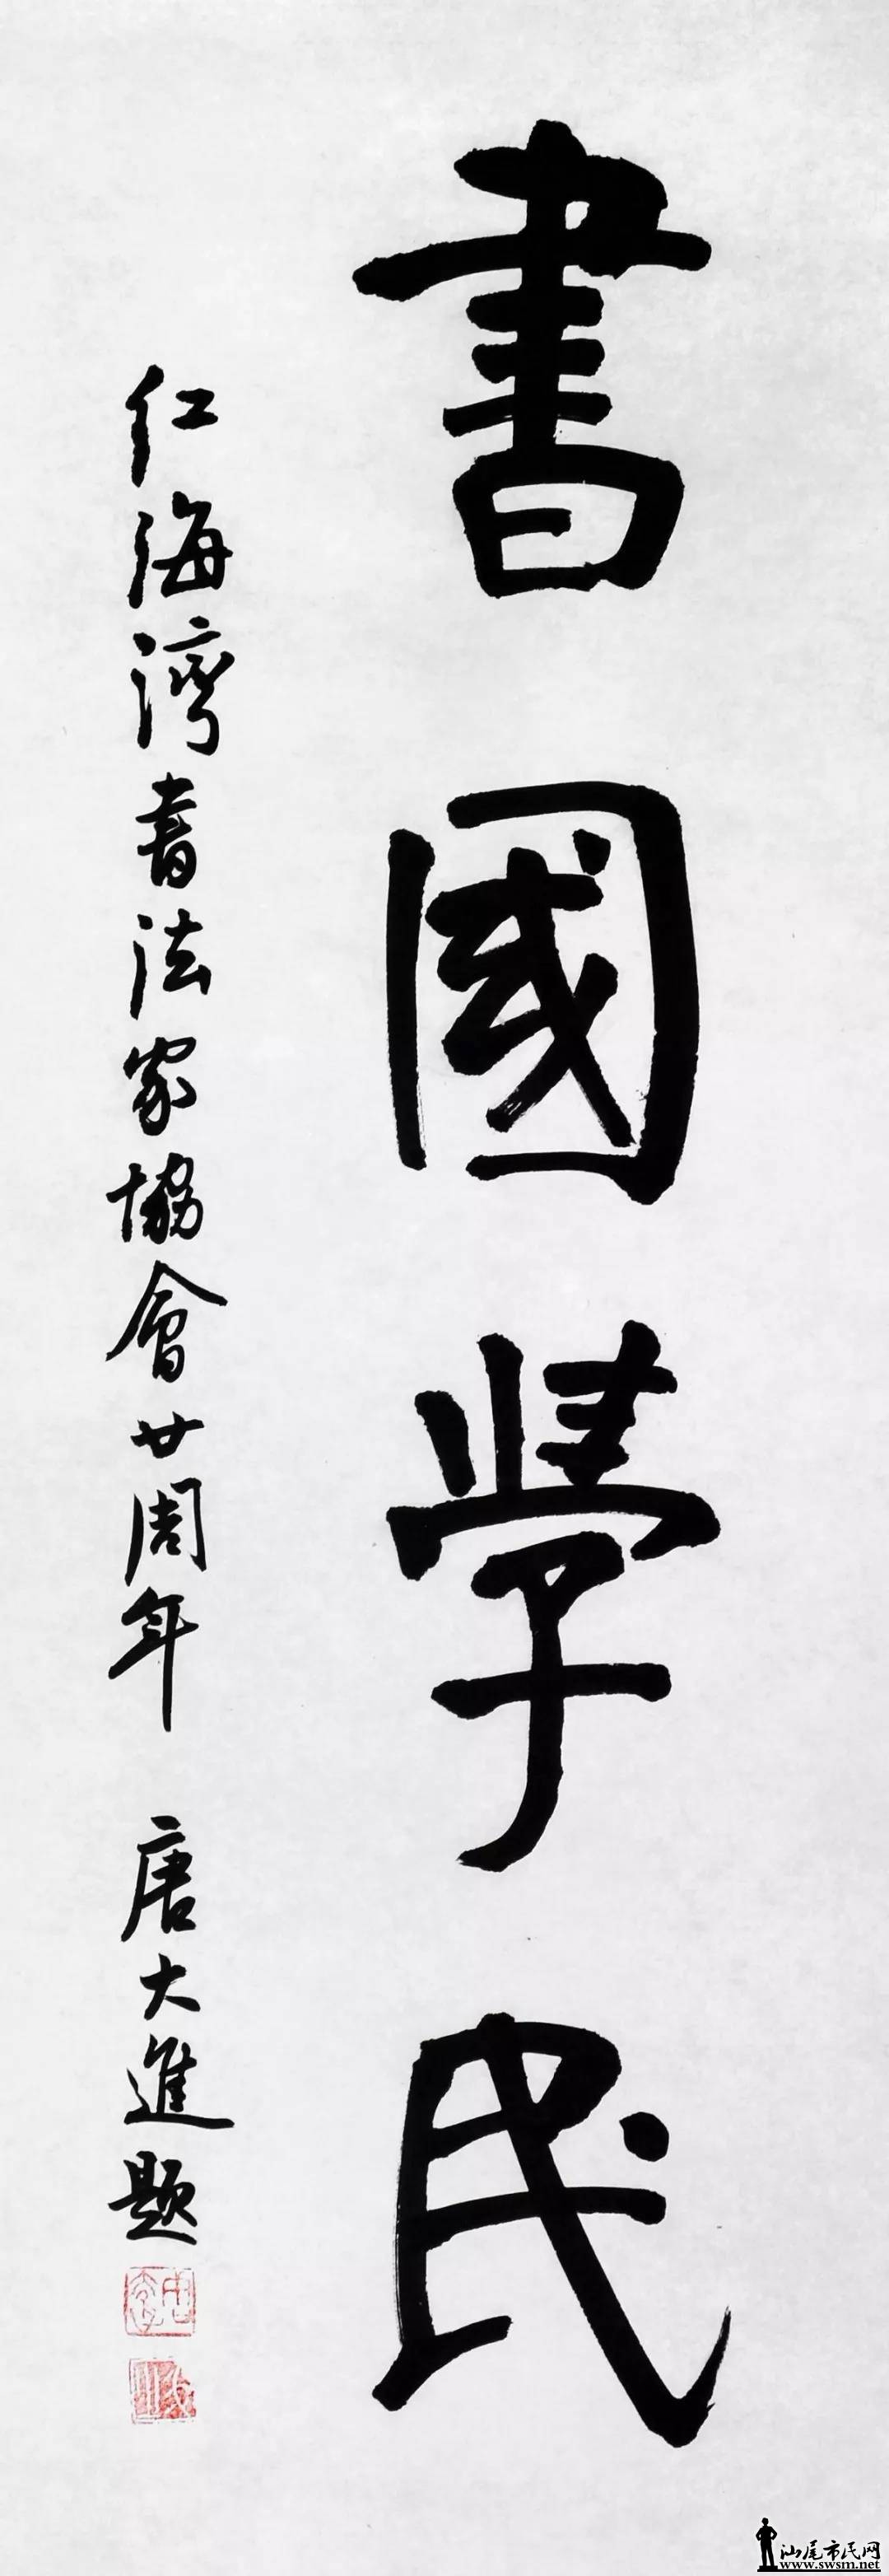 書國學民
紅海灣書法家協會廿周年 唐大進題
汕尾市民网
www.swsm.net